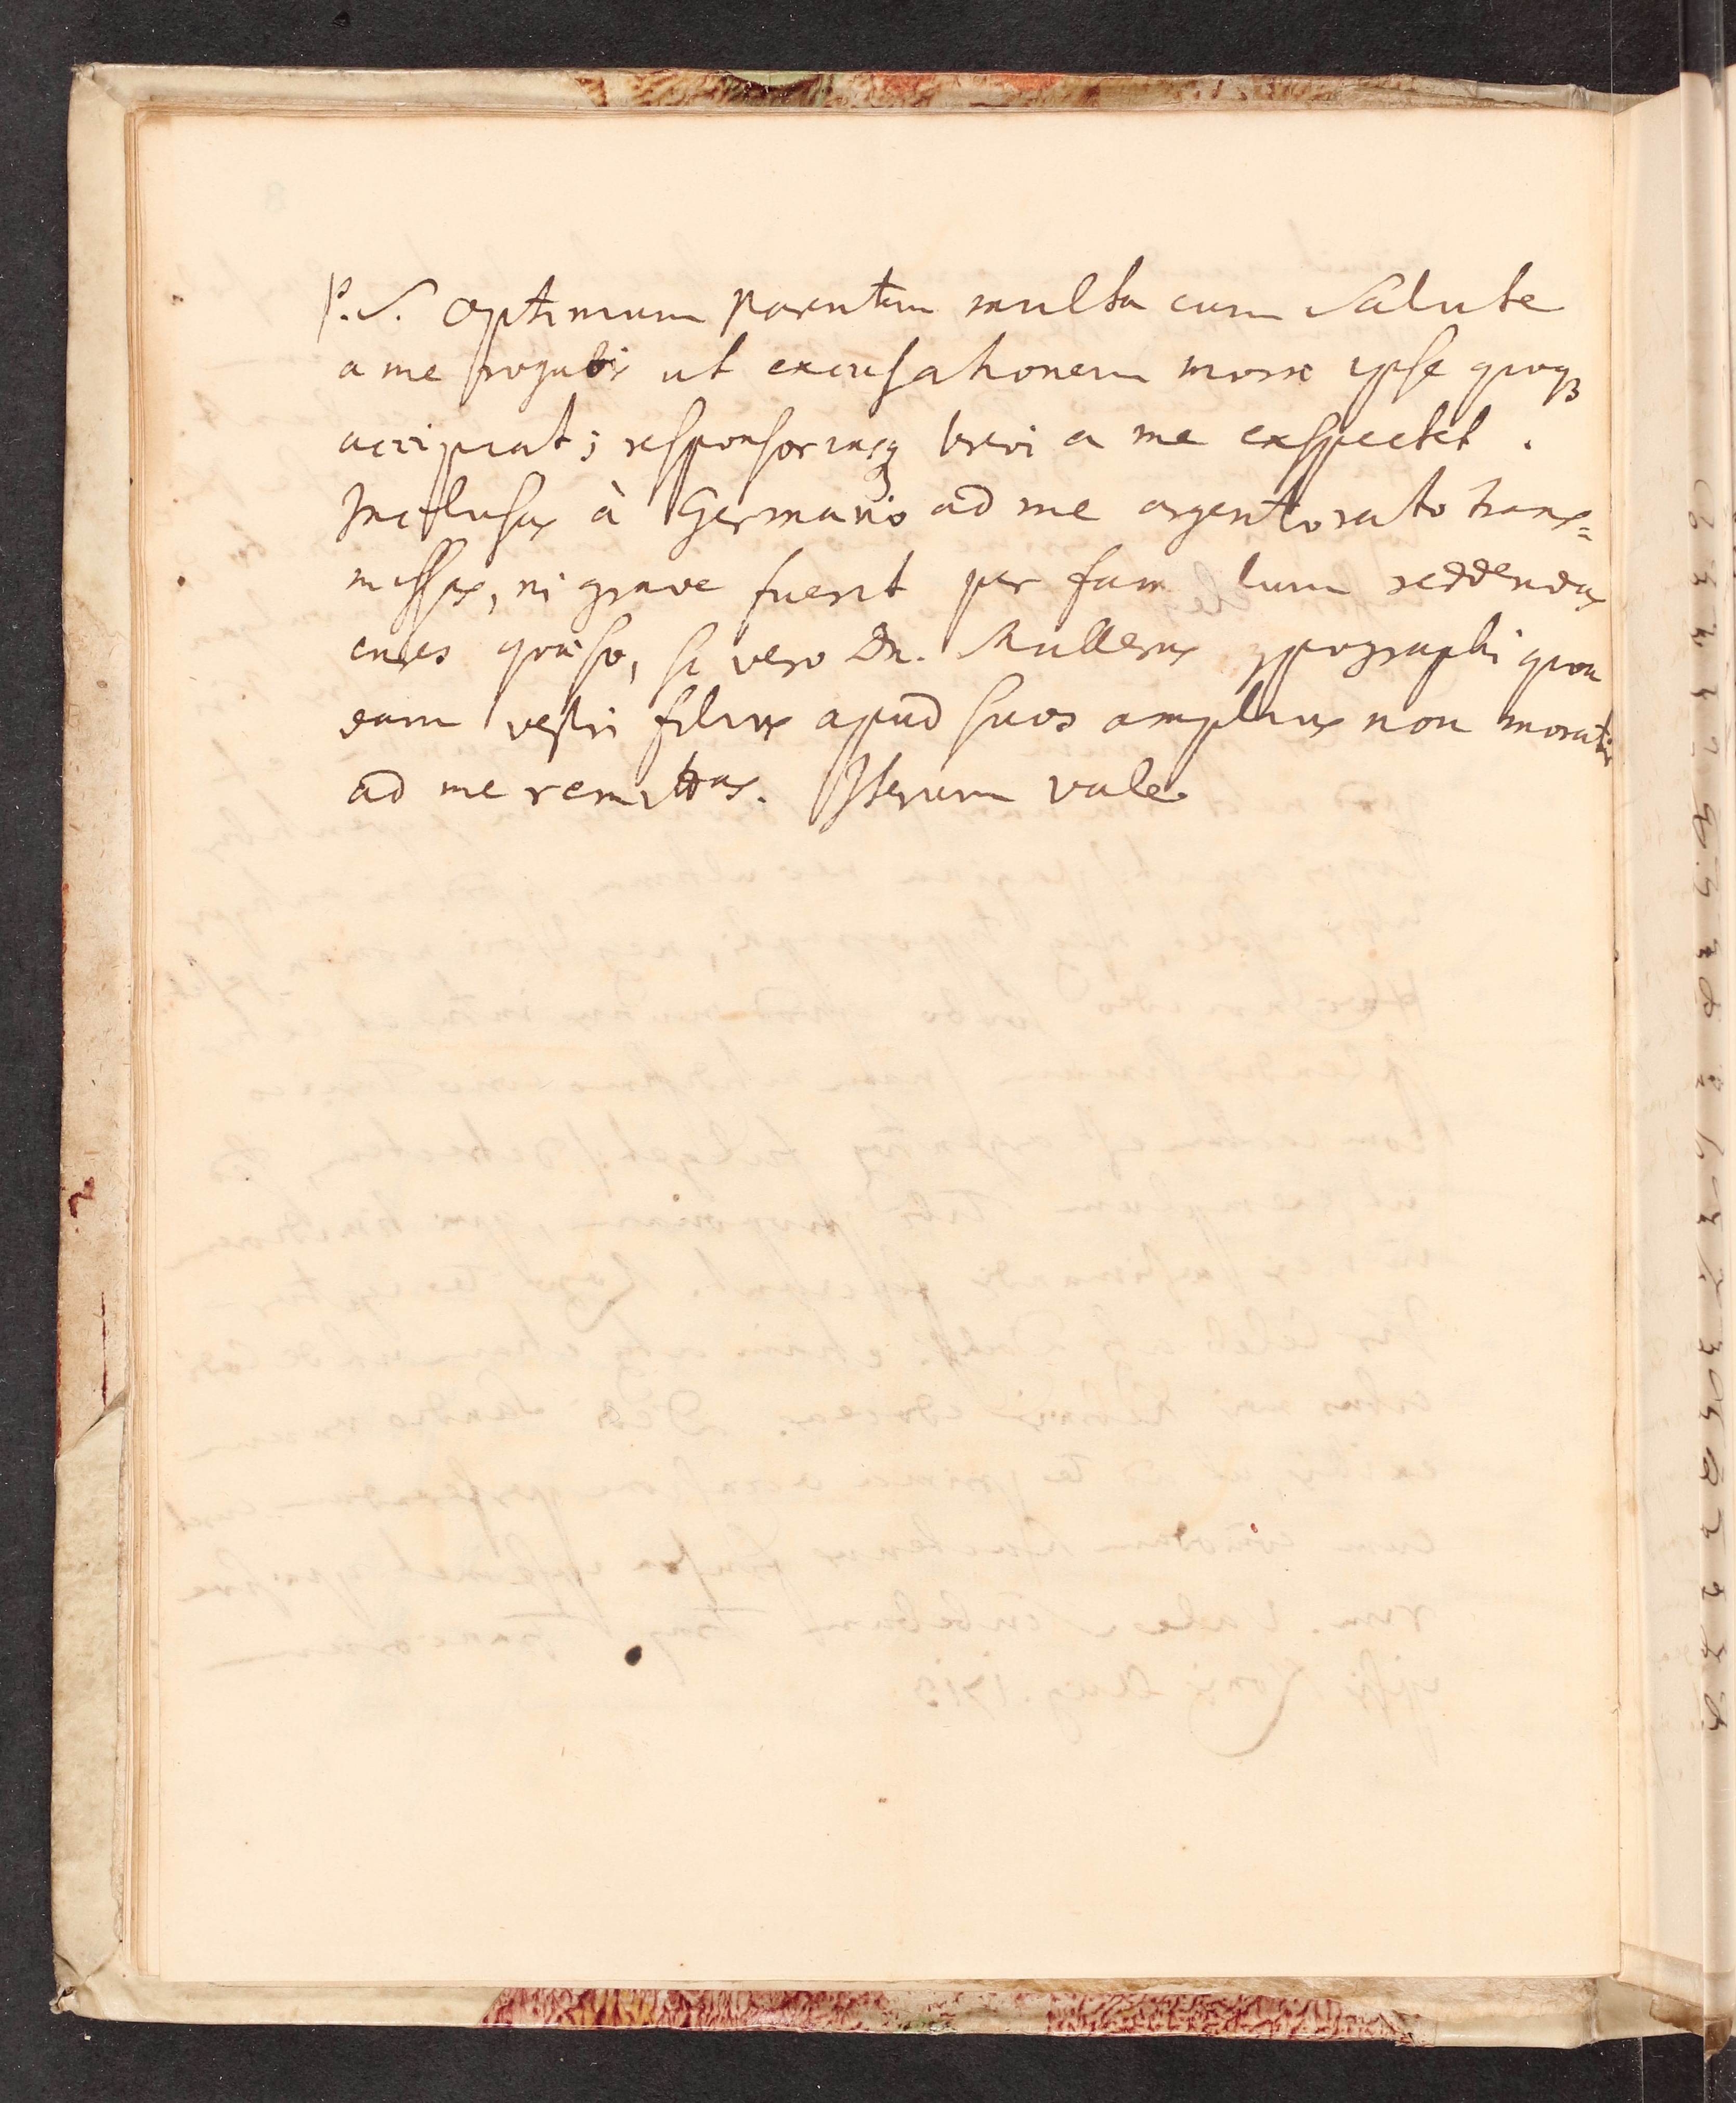 P.S. Optimum parentem multa cum Salute
a me rogabis ut excusationem moræ ipse quoqꝫ
accipiat; responsoriasqꝫ brevi a me exspectet.
Inclusas à Germano ad me argentorato trans=
missas, ni grave fuerit per fam lum reddendas
cures quæso, si vero Dn. Mullerus typographi quon
dam vestri filius apud suos amplius non moratur
ad me remittas. Iterum vale.